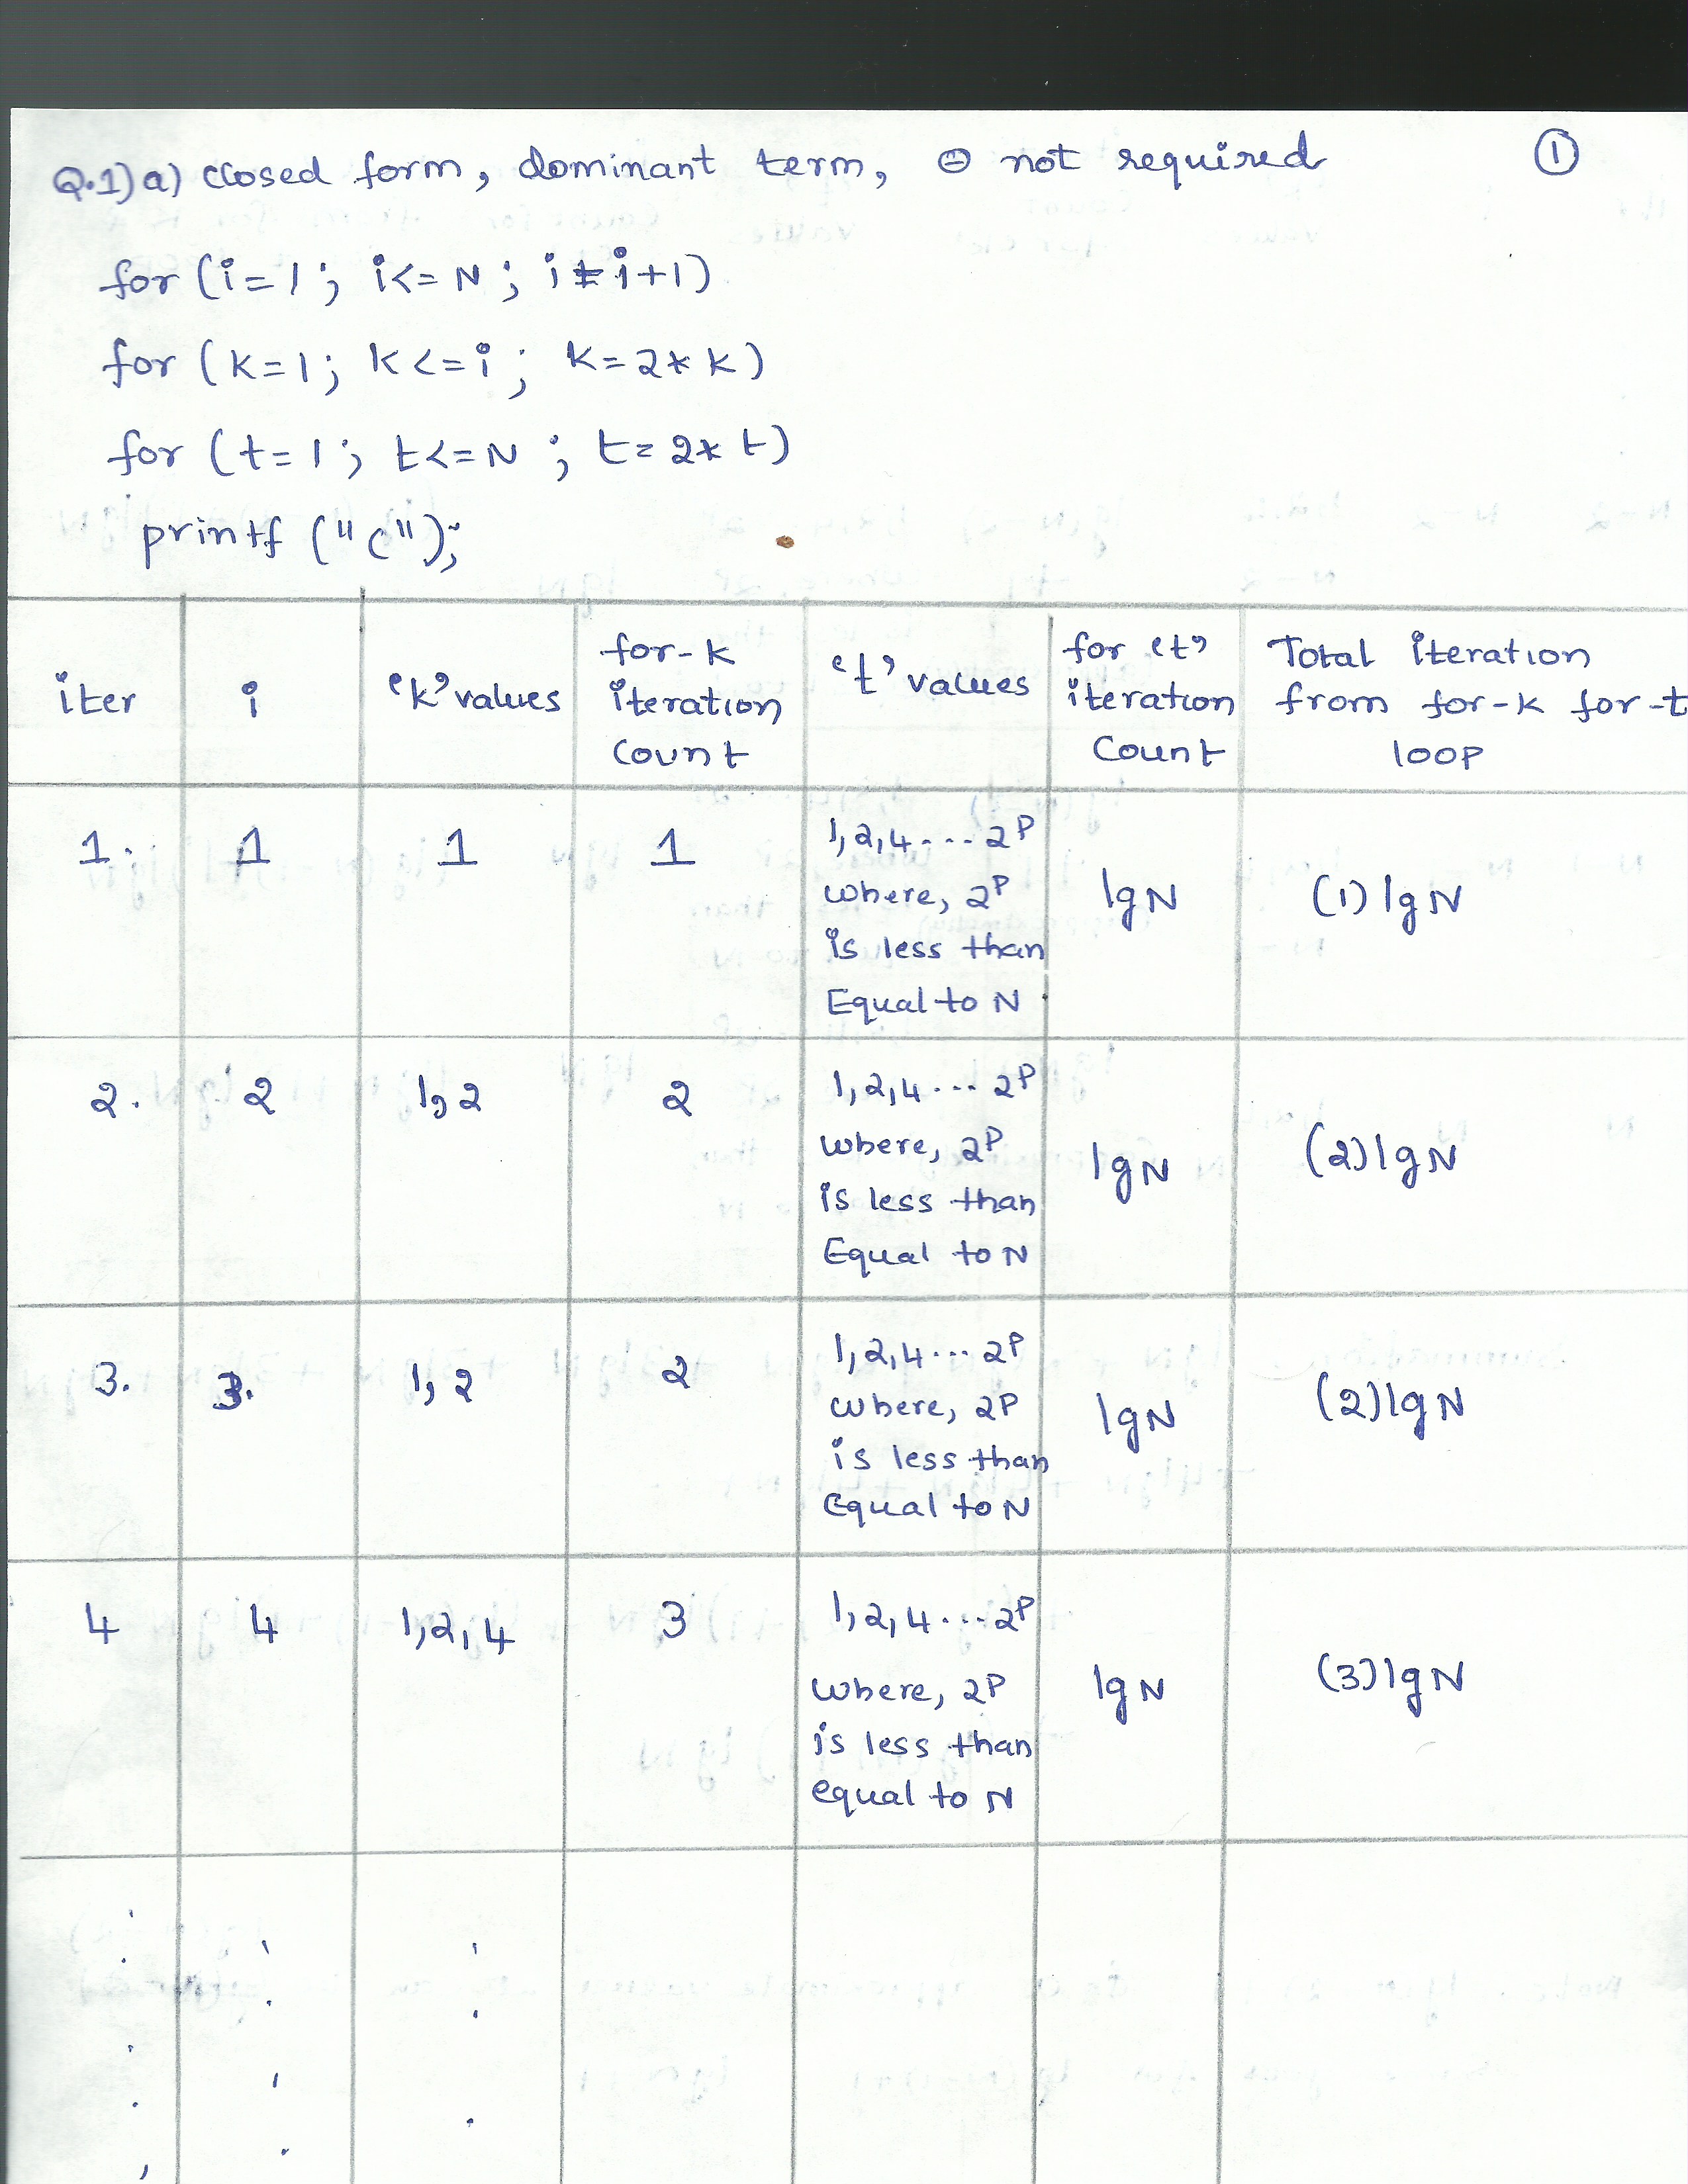 Q.1) a) closed form, dominant term, Θ not required ①
for (i=1; i<=N; i=i+1)
for (k=1; k<=i; k=2*k)
for (t=1; t<=N; t=2*t)
printf ("c");
iter i 'k' values for-k iteration count 't' values for 't' iteration count Total iteration from for-k for-t loop
1. 1 1 1 1,2,4...2^P where, 2^P is less than Equal to N lgN (1) lgN
2. 2 1,2 2 1,2,4...2^P where, 2^P is less than Equal to N lgN (2) lgN
3. 3. 1,2 2 1,2,4...2^P where, 2^P is less than Equal to N lgN (2) lgN
4 4 1,2,4 3 1,2,4...2^P where, 2^P is less than equal to N lgN (3) lgN